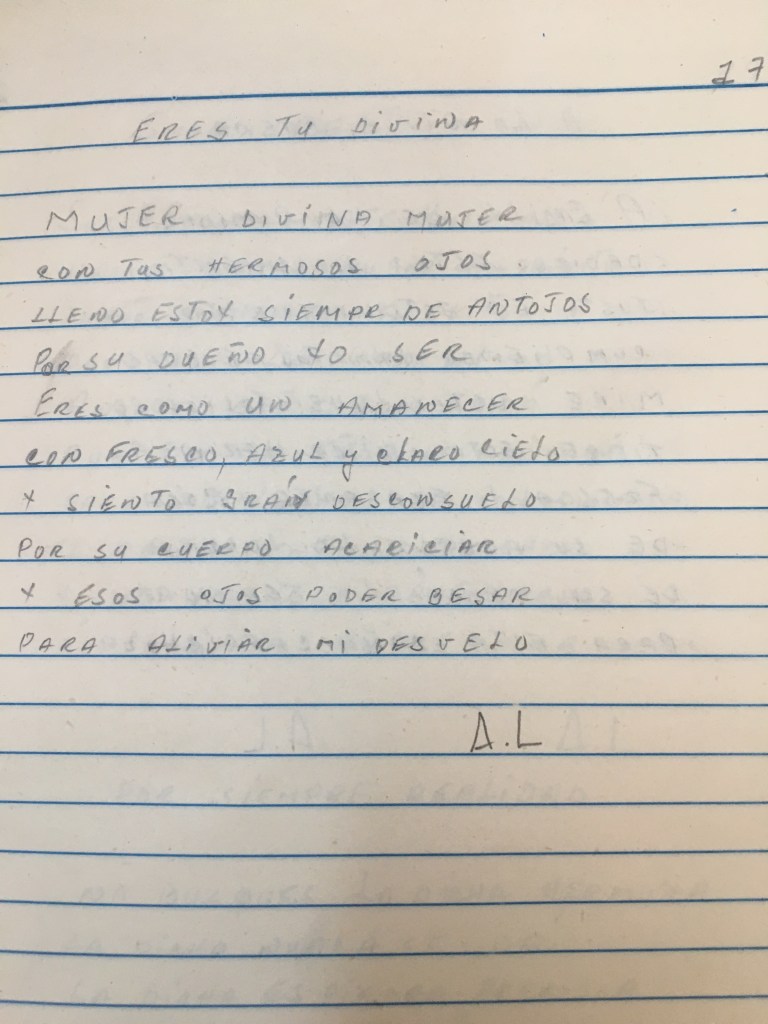 17
ERES TU DIVINA
MUJER DIVINA MUJER
CON TUS HERMOSOS OJOS.
LLENO ESTOY SIEMPR DE ANTOJOS
POR SU DUEÑO YO SER
ERES COMO UN AMANECER
CON FRESCO, AZUL y CLARO CIELO
Y SIENTO GRAN DESCONSUELO
POR SU CUERPO ACARICIAR
Y ESOS OJOS PODER BESAR
PARA ALIVIAR MI DESVELO
A.L